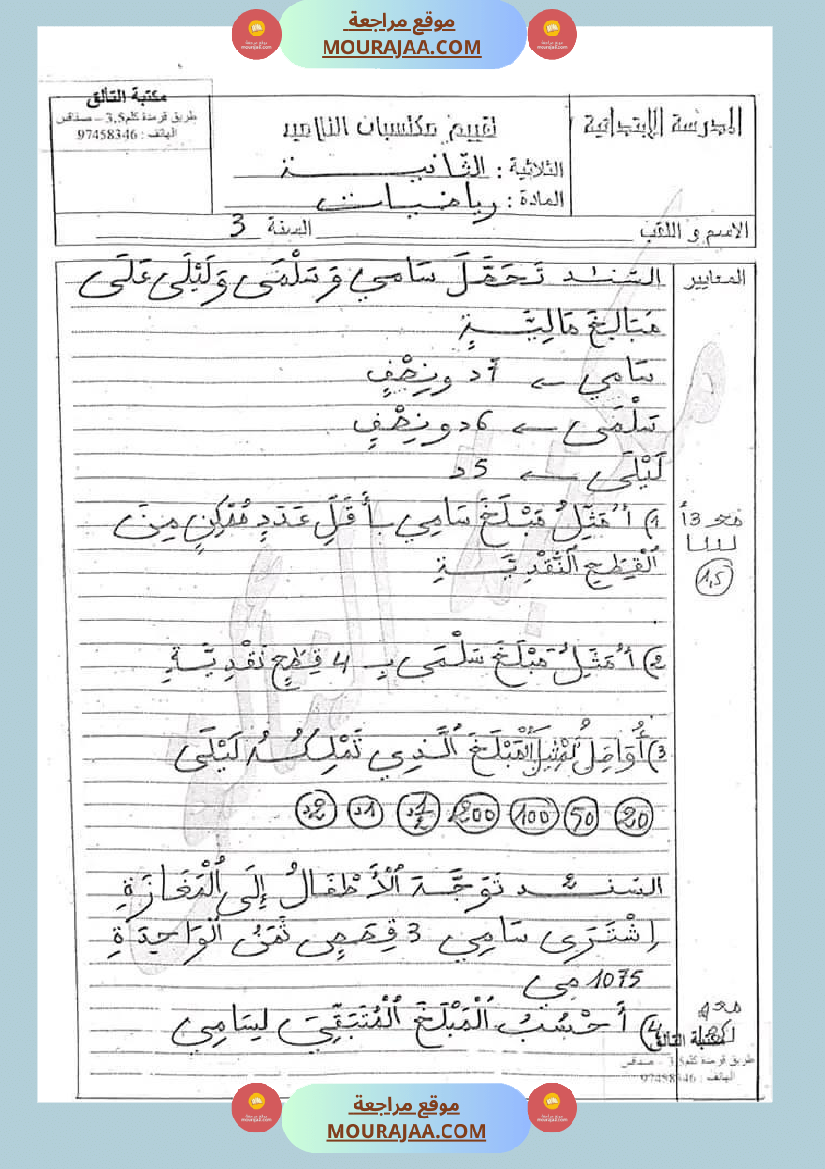 موقع مراجعة
MOURAJAA.COM
مكتبة التألق
طريق قرمدة كلم3,5 – صفاقس
الهاتف : 97458346
المدرسة الابتدائية
تقييم مكتسبات التلاميذ
الثلاثية : الثّانيـــة
المادة : رياضيـات
الاسم و اللقب
السنة 3
المعايير
السّند 1 تَحَصَّلَ سَامي وَسَلْمَى وَلَيْلَى عَلَى
مَبَالِغَ مَالِيَّـــةٍ
سَامي ← 7د ونِصْفٍ
سَلْمَى ← 6د ونِصْفٍ
لَيْلَى ← 5د
1) أُمَثِّلُ مَبْلَغَ سَامِي بِأَقَلِّ عَدَدٍ مُمْكِنٍ مِنَ
مع 3أ
اَلْقِطَعِ اَلنَّقْدِيَّــةِ
1,5
2) أُمَثِّلُ مَبْلَغَ سَلْمَى بِـ 4 قِطَعٍ نَقْدِيَّةٍ
3) أُوَاصِلُ تَمْثِيلَ اَلْمَبْلَغَ اَلَّذِي تَمْلِكُهُ لَيْلَى
20 50 100 200 1/2د 1د 2د
السّنـــد 2 تَوَجَّهَ اَلْأَطْفَالُ إِلَى اَلْمَغَازَةِ
اِشْتَرَى سَامِي 3 قِصَصٍ ثَمَنُ اَلْوَاحِدَةِ
1075 مي
4) أَحْسُبُ اَلْمَبْلَغَ اَلْمُتَبَقِّيَ لِسَامِي
مكتبة التألق
طريق قرمدة كلم3,5 – صفاقس
الهاتف : 97458346
موقع مراجعة
MOURAJAA.COM